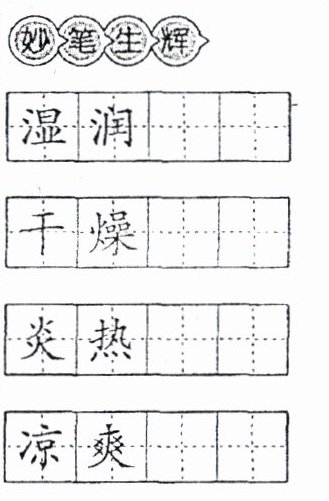 妙笔生辉
湿润
干燥
炎热
凉爽